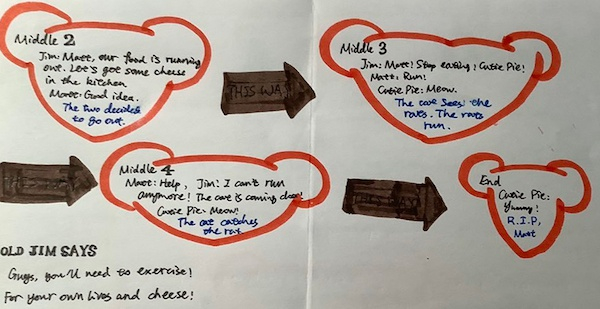 Middle 2
Jim: Matt, our food is running
out. Let's get some cheese
in the kitchen
Matt: Good idea.
The two decides
to go out.
THIS WAY
Middle 3
Jim: Matt! Stop eating! Cutie Pie!
Matt: Run!
Cutie Pie: Meow.
The cat sees the
rats. The rats
run.
Middle 4
Matt: Help, Jim! I can't run
anymore! The cat is coming close!
Cutie Pie: Meow!
The cat catches
the rat.
THIS WAY
End
Cutie Pie:
Yummy!
R.I.P,
Matt
OLD JIM SAYS
Guys, you'll need to exercise!
For your own lives and cheese!